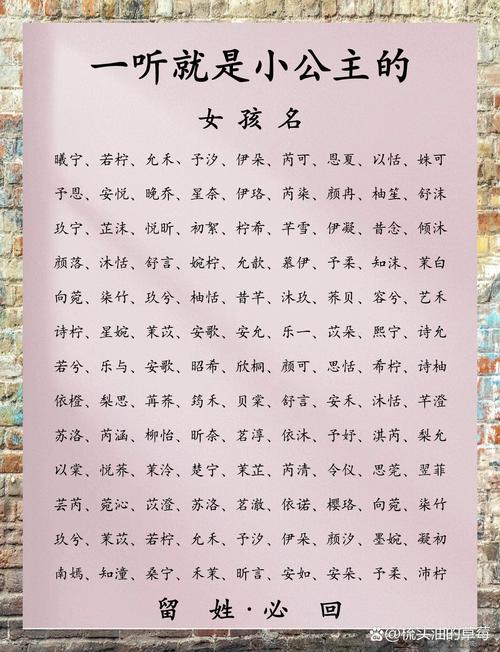 一听就是小公主的
女孩名
曦宁、若柠、允禾、予汐、伊朵、芮可、恩夏、以恬、姝可
予恩、安悦、晚乔、星奈、伊珞、芮柒、颜冉、柚笙、舒沫
玖宁、芷沫、悦昕、初絮、柠希、芊雪、伊凝、昔念、倾沐
颜落、沐恬、舒言、婉柠、允歆、慕伊、予柔、知沫、茉白
向菀、柒竹、玖兮、柚恬、昔芊、沐玖、荞贝、容兮、艺禾
诗柠、星婉、茉苡、安歌、安允、乐一、苡朵、熙宁、诗允
若兮、乐与、安歌、昭希、欣桐、颜可、思恬、希柠、诗柚
依橙、梨思、苒荞、筠禾、贝棠、舒言、安禾、沐恬、芊澄
苏洛、芮涵、柳怡、昕奈、茗淳、依沐、予妤、淇芮、梨允
以棠、悦荞、茉泠、楚宁、茉芷、芮清、令仪、思菀、翌菲
芸芮、菀沁、苡澄、苏洛、茗澈、依诺、樱珞、向菀、柒竹
玖兮、茉苡、若柠、允禾、予汐、伊朵、颜汐、墨婉、凝初
南嫣、知潼、桑宁、禾茉、昕言、安如、安朵、予柔、沛柠
留姓·必回
@梳头油的草莓